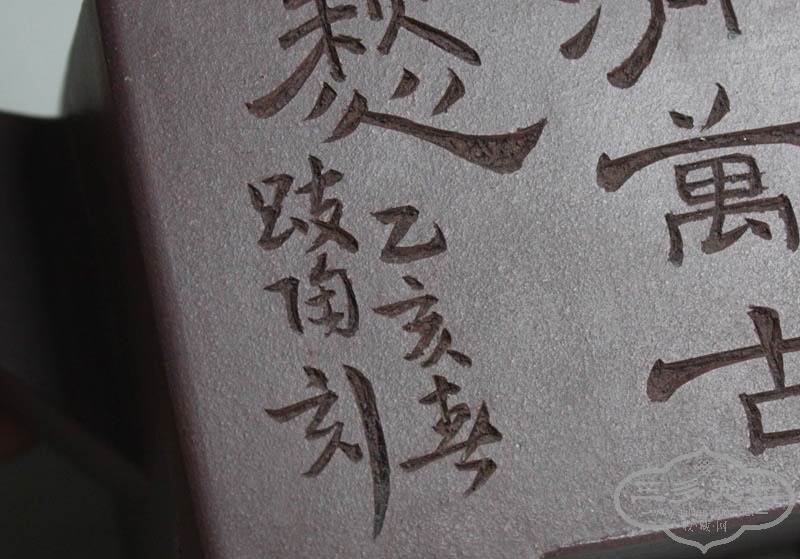 萬古
愁
乙亥春
跂陶刻